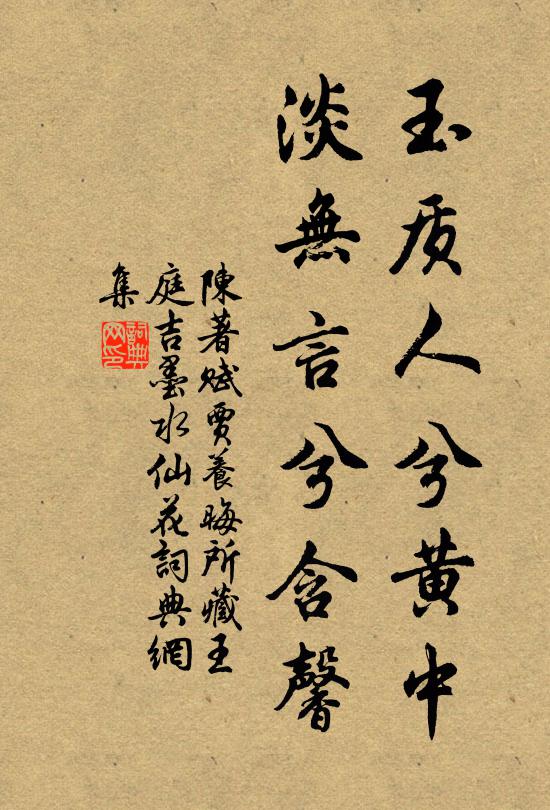 玉质人兮黄中
淡無言兮含馨
陳著賦賈養晦所藏王
庭吉墨水仙花詞典網
集
詞典网印